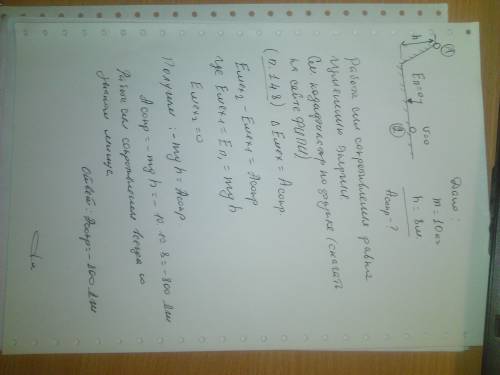 Дано:
m = 10 кг
h = 8 м
Aсопр = ?
①
h
Eп = 0
②
V=0
Работа сил сопротивления равна
изменению энергии.
См кодификатор по физике (скачать
на сайте ФИПИ)
(п. 1.4.8) ΔEмех = Aсопр
Eмех2 - Eмех1 = Aсопр
где Eмех1 = Eп1 = mgh
Eмех2 = 0
Получили: -mgh = Aсопр
Aсопр = -mgh = -10·10·8 = -800 Дж
Работа сил сопротивления всегда со
знаком минус.
Ответ: Aсопр = -800 Дж